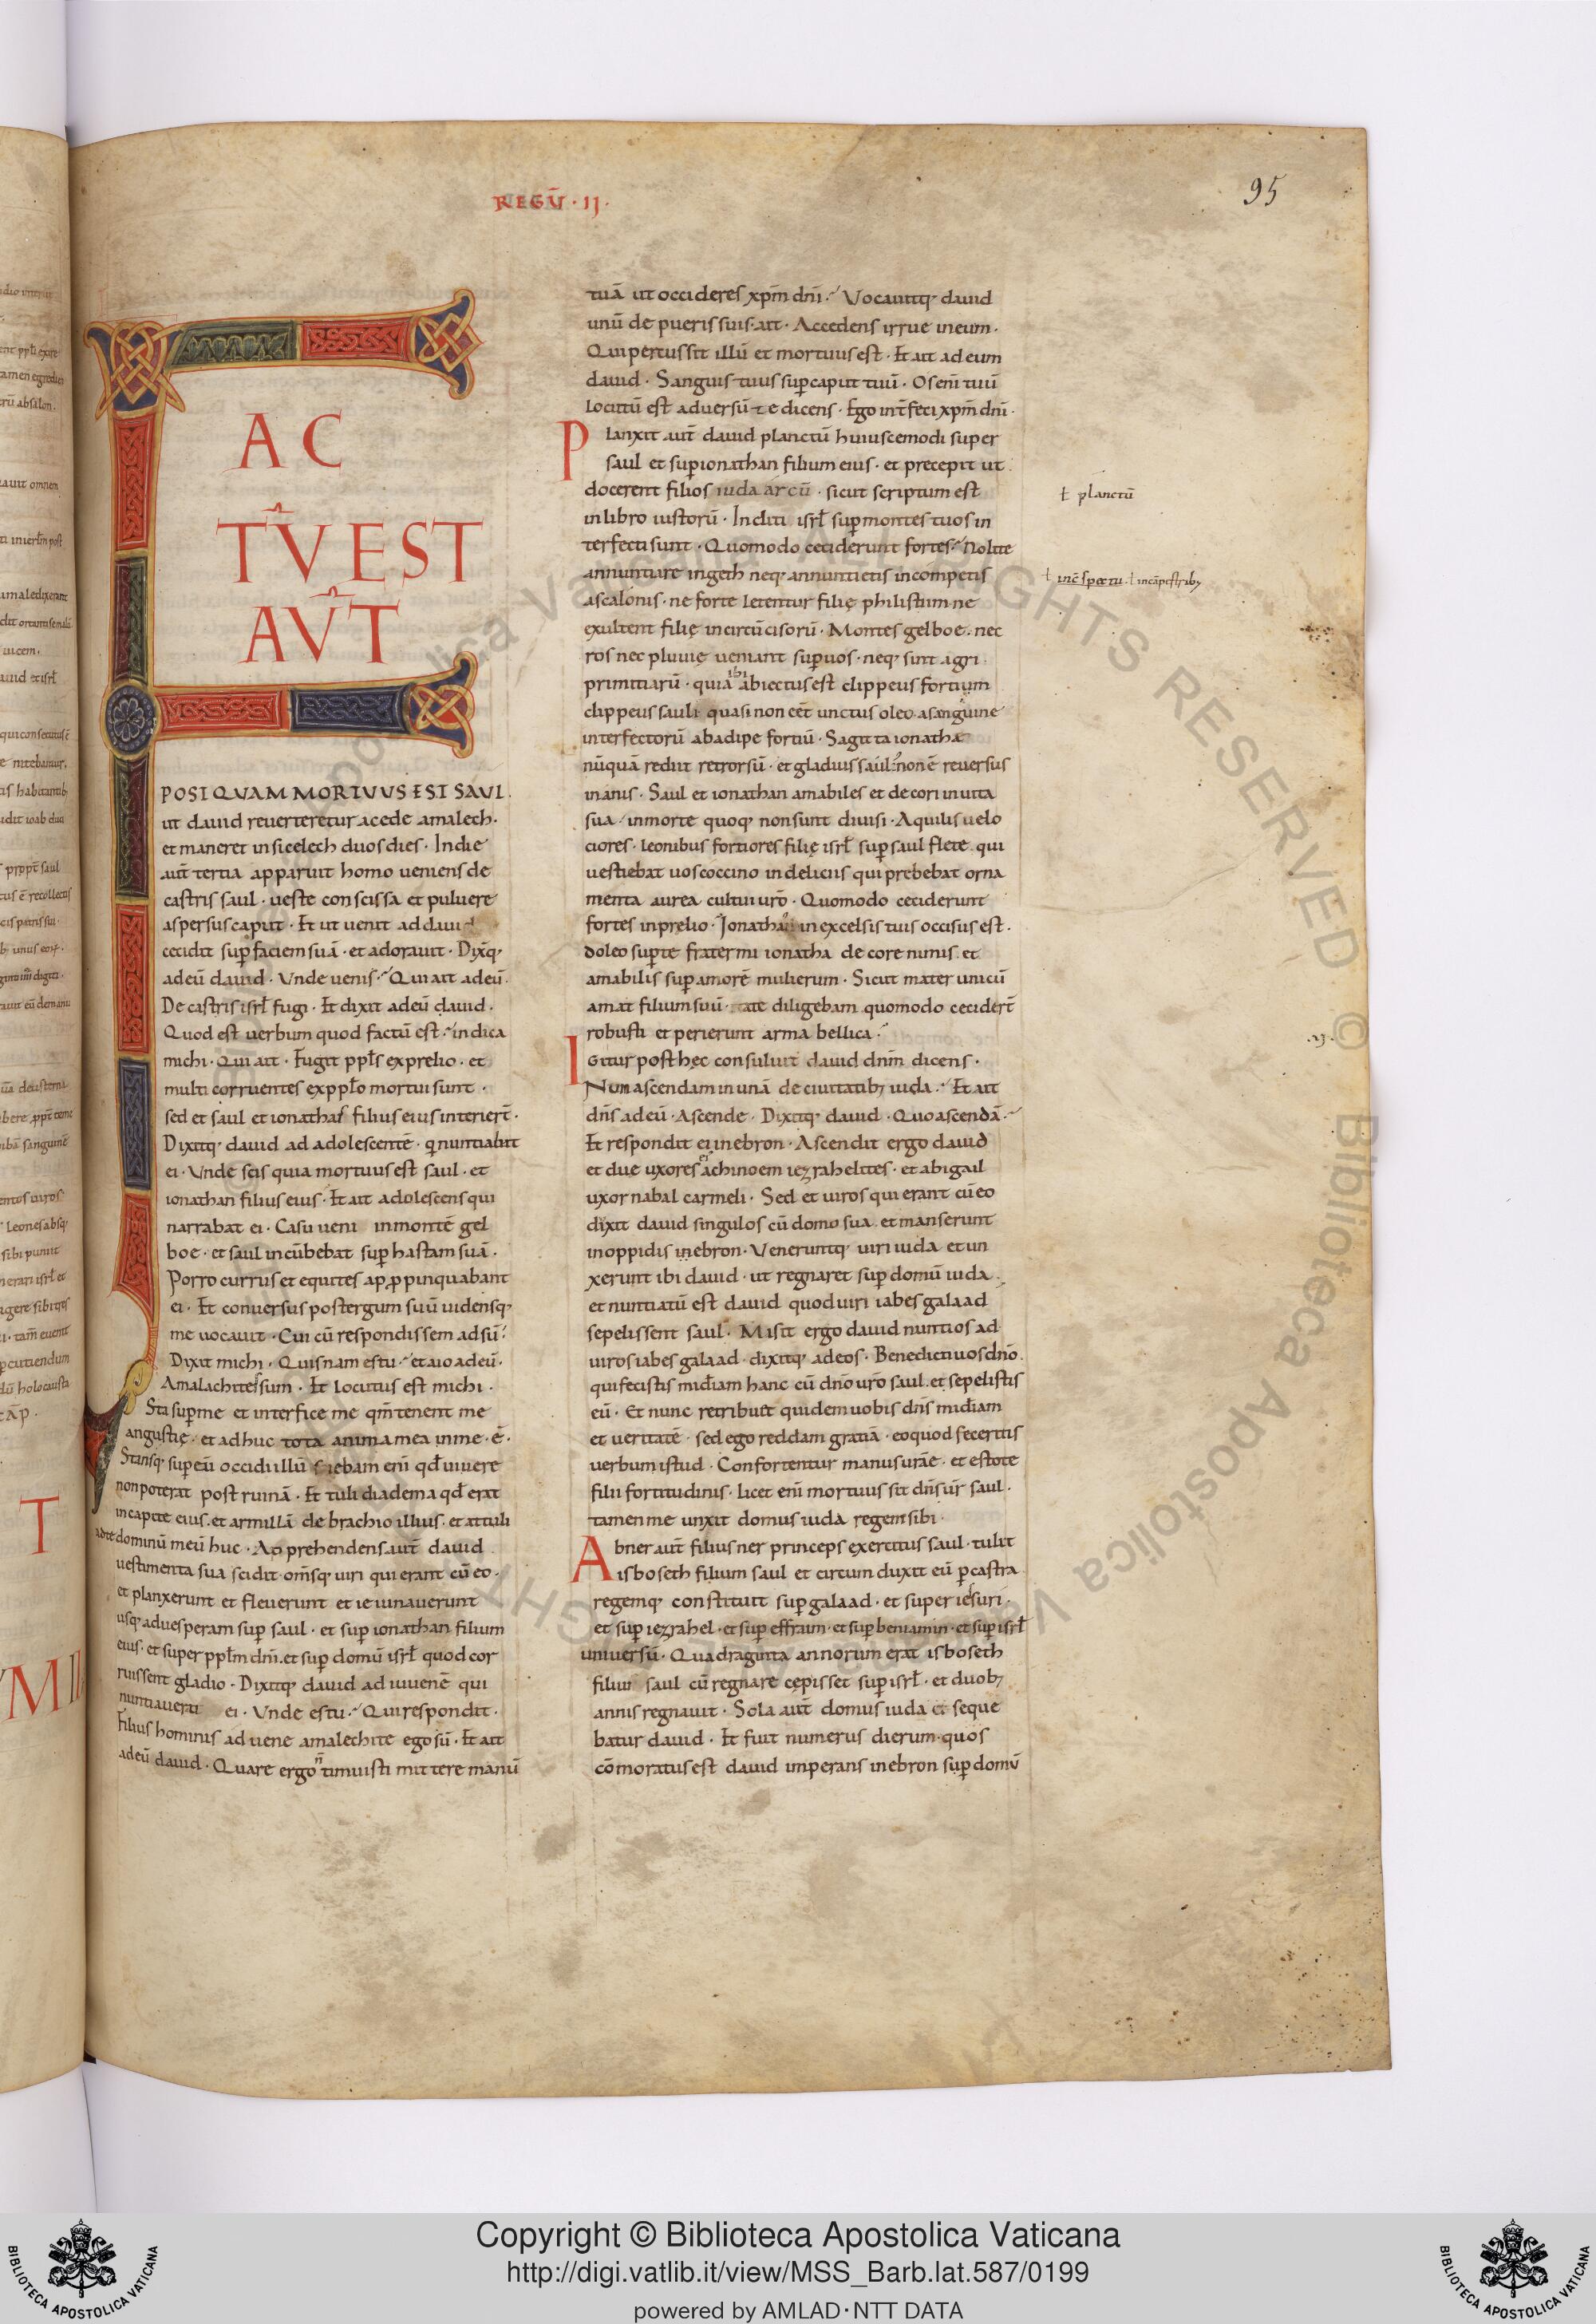 REGŪ · II ·
95
F
AC
TV̄ EST
AVT̄
POSTQUAM MORTUUS EST SAUL.
ut dauid reuerteretur acede amalech.
et maneret in sicelech duos dies · In die
aut̄ tertia apparuit homo ueniens de
castris saul · ueste conscissa et puluere
aspersus caput · Et ut uenit ad dauid
cecidit sup̄ faciem suā · et adorauit · Dix̄q;
ad eū dauid · Unde uenis · Qui ait ad eū·
De castris isrł fugi · Et dixit ad eū dauid ·
Quod est uerbum quod factū est · indica
michi · Qui ait · Fugit ppłs ex prelio · et
multi corruentes ex ppło mortui sunt ·
sed et saul et ionathas filius eius interier̄t ·
Dixitq; dauid ad adolescentē · q nuntiabat
ei · Unde scis quia mortuus est saul · et
ionathan filius eius · Et ait adolescens qui
narrabat ei · Casu ueni in montē gel
boe · et saul incūbebat sup̄ hastam suā ·
Porro currus et equites appropinquabant
ei · Et conuersus post ergum suū uidensq;
me uocauit · Cui cū respondissem adsū ·
Dixit michi · Quisnam es tu · et aio ad eū ·
Amalachites sum · Et locutus est michi ·
Sta sup̄ me et interfice me qm̄ tenent me
angustię · et adhuc tota anima mea in me · ē ·
Stansq; sup̄ eū occidi illū sciebam enī qđ uiuere
non poterat post ruinā · Et tuli diadema qđ erat
in capite eius · et armillā de brachio illius · et attuli
ad te dominū meū huc · Apprehendens aut̄ dauid
uestimenta sua scidit · om̄sq; uiri qui erant cū eo ·
et planxerunt et fleuerunt et ieiunauerunt
usq; ad uesperam sup̄ saul · et sup̄ ionathan filium
eius · et super ppłm dn̄i · et sup̄ domū isrł quod cor
ruissent gladio · Dixitq; dauid ad iuuenē qui
nuntiauerat ei · Unde es tu · Qui respondit ·
Filius hominis aduene amalechite ego sū · Et ait
ad eū dauid · Quare ergo n̄ timuisti mittere manū
tuā ut occideres xp̄m dn̄i · Vocauitq; dauid
unū de pueris suis · ait · Accedens irrue in eum ·
Qui percussit illū et mortuus est · Et ait ad eum
dauid · Sanguis tuus sup̄ caput tuū · Os enī tuū
locutū est aduersū te dicens · Ego int̄feci xp̄m dn̄i ·
Planxit aut̄ dauid planctū huiuscemodi super
saul et sup̄ ionathan filium eius · et precepit ut
docerent filios iuda arcū · sicut scriptum est
in libro iustorū · Incliti isrł sup̄ montes tuos in
terfecti sunt · Quomodo ceciderunt fortes · Nolite
annuntiare in geth neq; annuntietis in competis
ascalonis · ne forte letentur filię philistium ne
exultent filię incircūcisorū · Montes gelboe · nec
ros nec pluuię ueniant sup̄ uos · neq; sint agri
primitiarū · quia ibi abiectus est clippeus fortium
clippeus saul quasi non eēt unctus oleo · a sanguine
interfectorū ab adipe fortiū · Sagitta ionathę
nūquā rediit retrorsū · et gladius saul non ē reuersus
inanis · Saul et ionathan amabiles et decori in uita
sua · in morte quoq; non sunt diuisi · Aquilis uelo
ciores · leonibus fortiores filię isrł sup̄ saul flete · qui
uestiebat uos coccino in deliciis qui prebebat orna
menta aurea cultui ur̄o · Quomodo ceciderunt
fortes in prelio · Ionathan in excelsis tuis occisus est ·
doleo sup̄ te frater mi ionatha decore nimis · et
amabilis sup̄ amorē mulierum · Sicut mater unicū
amat filium suū · ita te diligebam quomodo cecider̄t
robusti et perierunt arma bellica ·
Igitur post hęc consuluit dauid dnm̄ dicens ·
Num ascendam in unā de ciuitatib; iuda · Et ait
dn̄s ad eū · Ascende · Dixitq; dauid · Quo ascendā ·
Et respondit ei in ebron · Ascendit ergo dauid
et due uxores ei' achinoem iezrahelites · et abigail
uxor nabal carmeli · Sed et uiros qui erant cū eo
dixit dauid singulos cū domo sua · et manserunt
in oppidis in ebron · Veneruntq; uiri iuda et un
xerunt ibi dauid · ut regnaret sup̄ domū iuda ·
et nuntiatū est dauid quod uiri iabes galaad
sepelissent saul · Misit ergo dauid nuntios ad
uiros iabes galaad · dixitq; ad eos · Benedicti uos dn̄o ·
qui fecistis mīdiam hanc cū dn̄o ur̄o saul · et sepelistis
eū · Et nunc retribuet quidem uobis dn̄s mīdiam
et ueritatē · sed ego reddam gratiā · eo quod feceritis
uerbum istud · Confortentur manus ur̄ae · et estote
filii fortitudinis · licet enī mortuus sit dn̄s ūr saul ·
tamen me unxit domus iuda regem sibi ·
Abner aut̄ filius ner princeps exercitus saul · tulit
isboseth filium saul et circum duxit eū p castra
regemq; constituit sup̄ galaad · et super iesuri ·
et sup̄ iezrahel · et sup̄ effraim · et sup̄ beniamin · et sup̄ isrł
uniuersū · Quadraginta annorum erat isboseth
filius saul cū regnare cępisset sup̄ isrł · et duob;
annis regnauit · Sola aut̄ domus iuda et seque
batur dauid · Et fuit numerus dierum · quos
cōmoratus est dauid imperans in ebron sup̄ domū
ł planctū
ł inc̄spectu · ł incāpestrib;
Copyright © Biblioteca Apostolica Vaticana
http://digi.vatlib.it/view/MSS_Barb.lat.587/0199
powered by AMLAD·NTT DATA
BIBLIOTECA APOSTOLICA VATICANA
BIBLIOTECA APOSTOLICA VATICANA